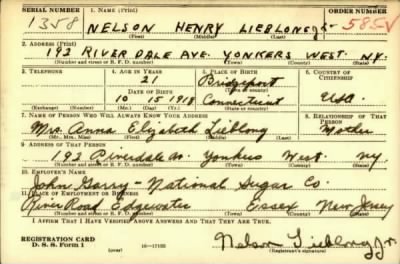 SERIAL NUMBER 1. NAME (Print) ORDER NUMBER
1358 NELSON HENRY LIEBLONG Jr 585V
(First) (Middle) (Last)
2. ADDRESS (Print)
192 RIVER DALE AVE. YONKERS WEST. NY.
(Number and street or R. F. D. number) (Town) (County) (State)
3. TELEPHONE 4. AGE IN YEARS 5. PLACE OF BIRTH 6. COUNTRY OF CITIZENSHIP
21 Bridgeport
DATE OF BIRTH (Town or county)
10 15 1918 Connecticut USA
(Exchange) (Number) (Mo.) (Day) (Yr.) (State or country)
7. NAME OF PERSON WHO WILL ALWAYS KNOW YOUR ADDRESS 8. RELATIONSHIP OF THAT PERSON
Mrs. Anna Elizabeth Lieblong Mother
(Mr., Mrs., Miss) (First) (Middle) (Last)
9. ADDRESS OF THAT PERSON
192 Riverdale Av. Yonkers West. NY.
(Number and street or R. F. D. number) (Town) (County) (State)
10. EMPLOYER'S NAME
John Garry National Sugar Co.
11. PLACE OF EMPLOYMENT OR BUSINESS
River Road Edgewater Essex New Jersey
(Number and street or R. F. D. number) (Town) (County) (State)
I AFFIRM THAT I HAVE VERIFIED ABOVE ANSWERS AND THAT THEY ARE TRUE.
REGISTRATION CARD
D. S. S. Form 1 (over) 16—17105 Nelson Lieblong Jr.
(Registrant's signature)